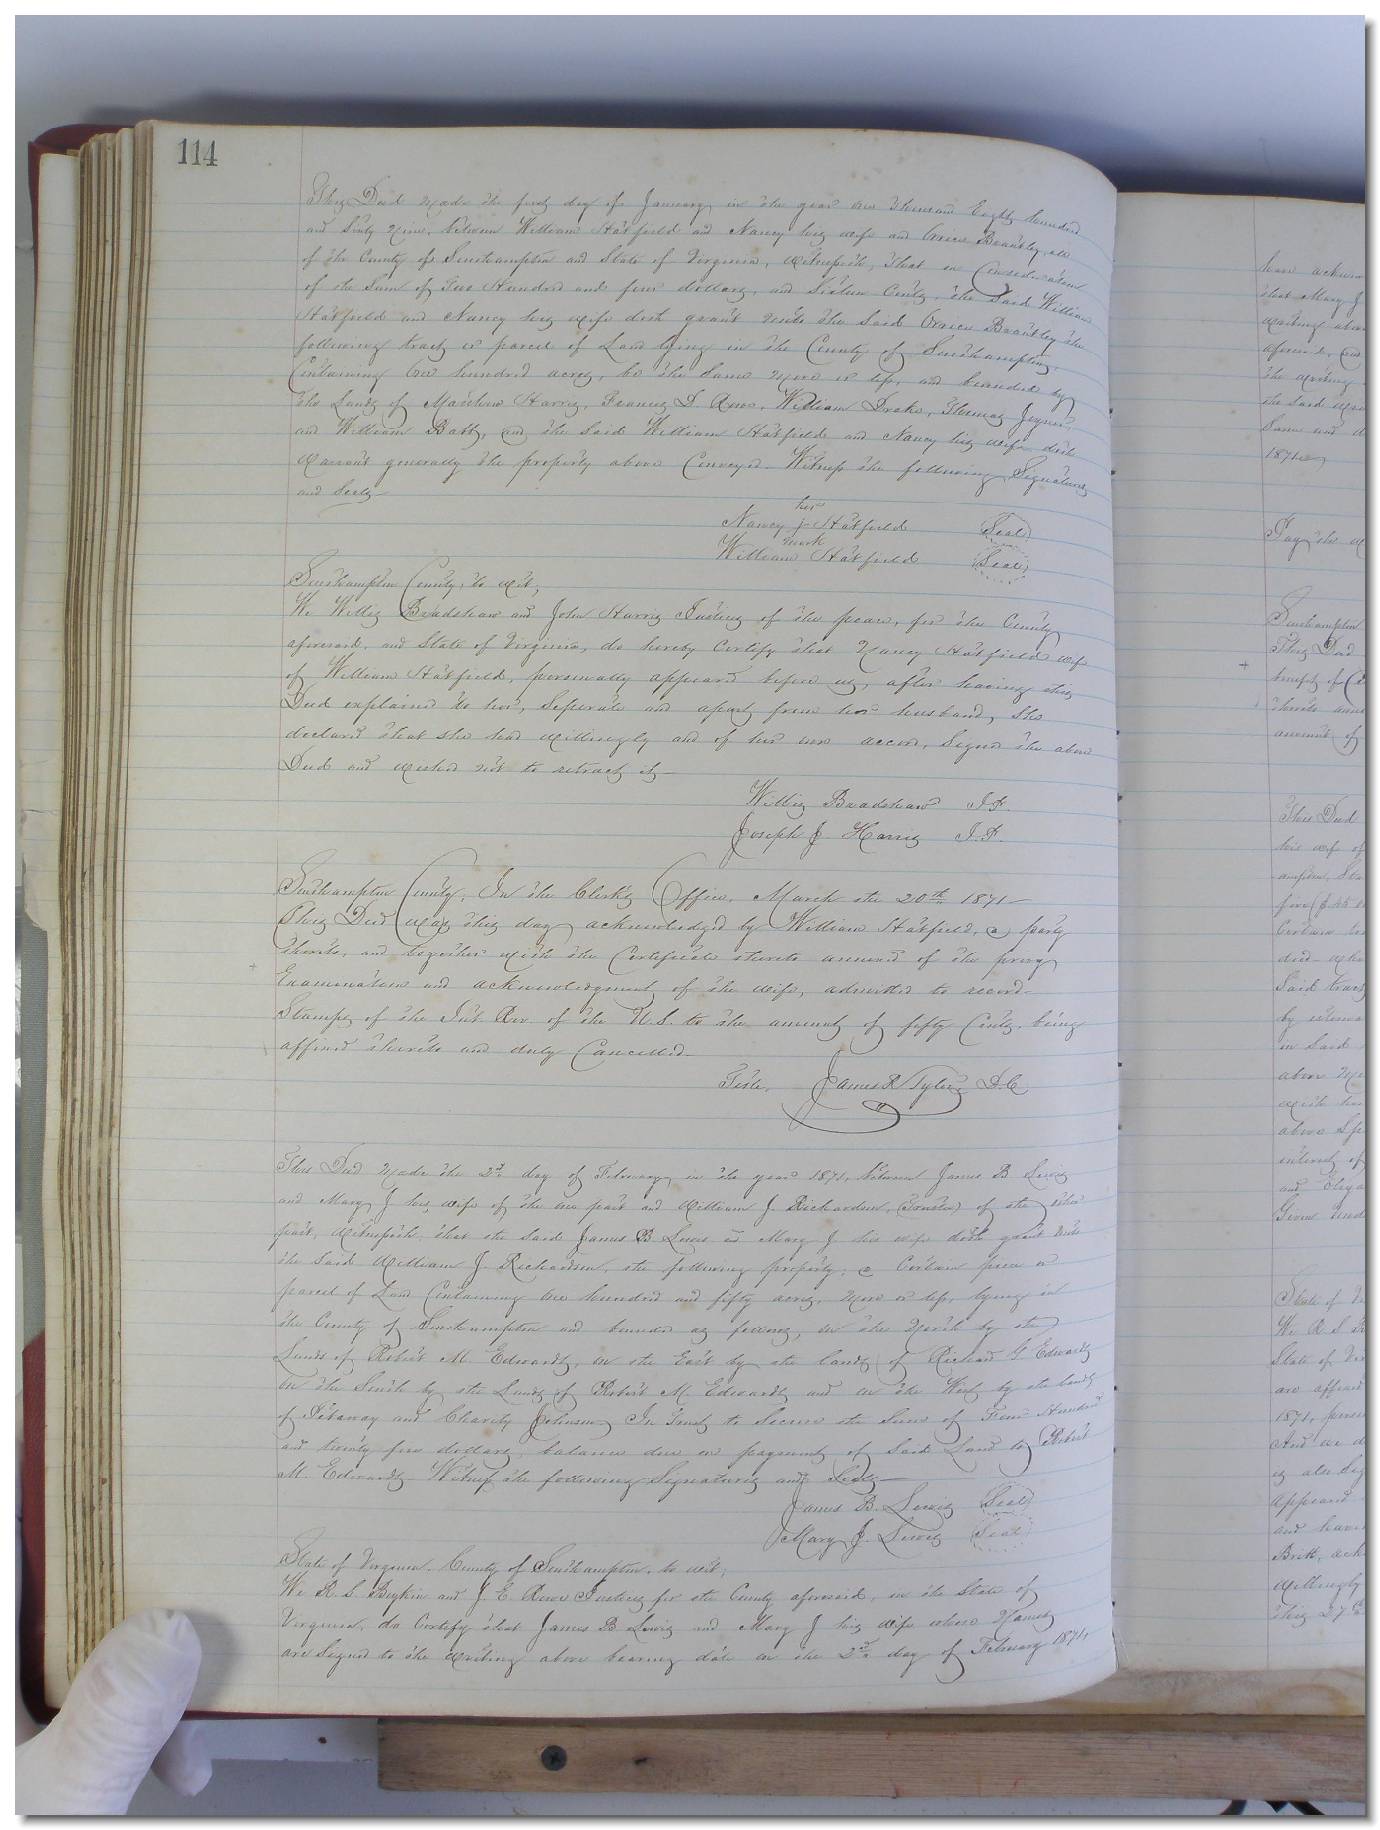 114
This Deed made the first day of January in the year one thousand Eight hundred
and Sixty Nine, between William Hatfield and Nancy his wife and Orrice Brantley, all
of the County of Southampton and State of Virginia, Witnesseth, that in Consideration
of the Sum of Two Hundred and four dollars, and Sixteen Cents, the Said William
Hatfield and Nancy his wife doth grant unto the Said Orrice Brantley the
following tract or parcel of Land lying in the County of Southampton,
Containing One hundred acres, be the Same More or less, and bounded by
the Lands of Matthew Harris, Francis D Rose, William Drake, Thomas Joyner,
and William Batts, and the Said William Hatfield and Nancy his wife doth
Warrant generally the property above Conveyed. Witness the following Signatures
and Seals
her
Nancy J Hatfield Seal
mark
William Hatfield Seal
Southampton County, to wit,
We Willis Bradshaw and John Harris Justices of the peace, for the County
aforesaid, and State of Virginia, do hereby Certify that Nancy Hatfield wife
of William Hatfield, personally appeared before us, after having this
Deed explained to her, Seperate and apart from her husband, She
declared that she had willingly and of her own accord, Signed the above
Deed and wished not to retract it—
Willis Bradshaw J.P.
Joseph J. Harris J.P.
Southampton County, In the Clerk's Office, March the 20th 1871—
This Deed was this day acknowledged by William Hatfield, a party
thereto, and together with the Certificate thereto annexed of the privy
Examination and acknowledgment of the wife, admitted to record.
Stamps of the Int. Rev. of the U.S. to the amount of fifty Cents, being
affixed thereto and duly Cancelled—
Teste, James R Tyler D.C.
This Deed made the 2d day of February in the year 1871, between James B Lewis
and Mary J his wife of the one part and William J. Richardson, (Trustee) of the other
part, Witnesseth, that the said James B Lewis and Mary J his wife doth grant unto
the said William J Richardson, the following property, a Certain piece or
parcel of Land Containing One hundred and fifty acres, More or less, lying in
the County of Southampton and bounded as follows, on the North by the
Lands of Robert M. Edwards, on the East by the lands of Richard G Edwards
on the South by the Lands of Robert M. Edwards and on the West by the lands
of and Charity Johnson, In Trust to Secure the Sum of Four Hundred
and twenty five dollars, balance due in payment of Said Land to Robert
M. Edwards. Witness the following Signatures and Seals—
James B. Lewis Seal
Mary J. Lewis Seal
State of Virginia. County of Southampton, to wit,
We R. S. Boykin and J. E. Rowe Justices for the County aforesaid, in the State of
Virginia, do Certify that James B Lewis and Mary J his wife whose Names
are Signed to the Writing above bearing date on the 2d day of February 1871,
have
that Mary J
writing above
aforesaid,
the writing
the said
Same and
1871
Southampton
This Deed
benefit of
thereto
amount of
This Deed
his wife of
Certain
Said tract
by
in Said
above
with
above
and
Given
State of
We R S
State of
are
1871,
And we
appeared
and
Britt,
willingly
this 27